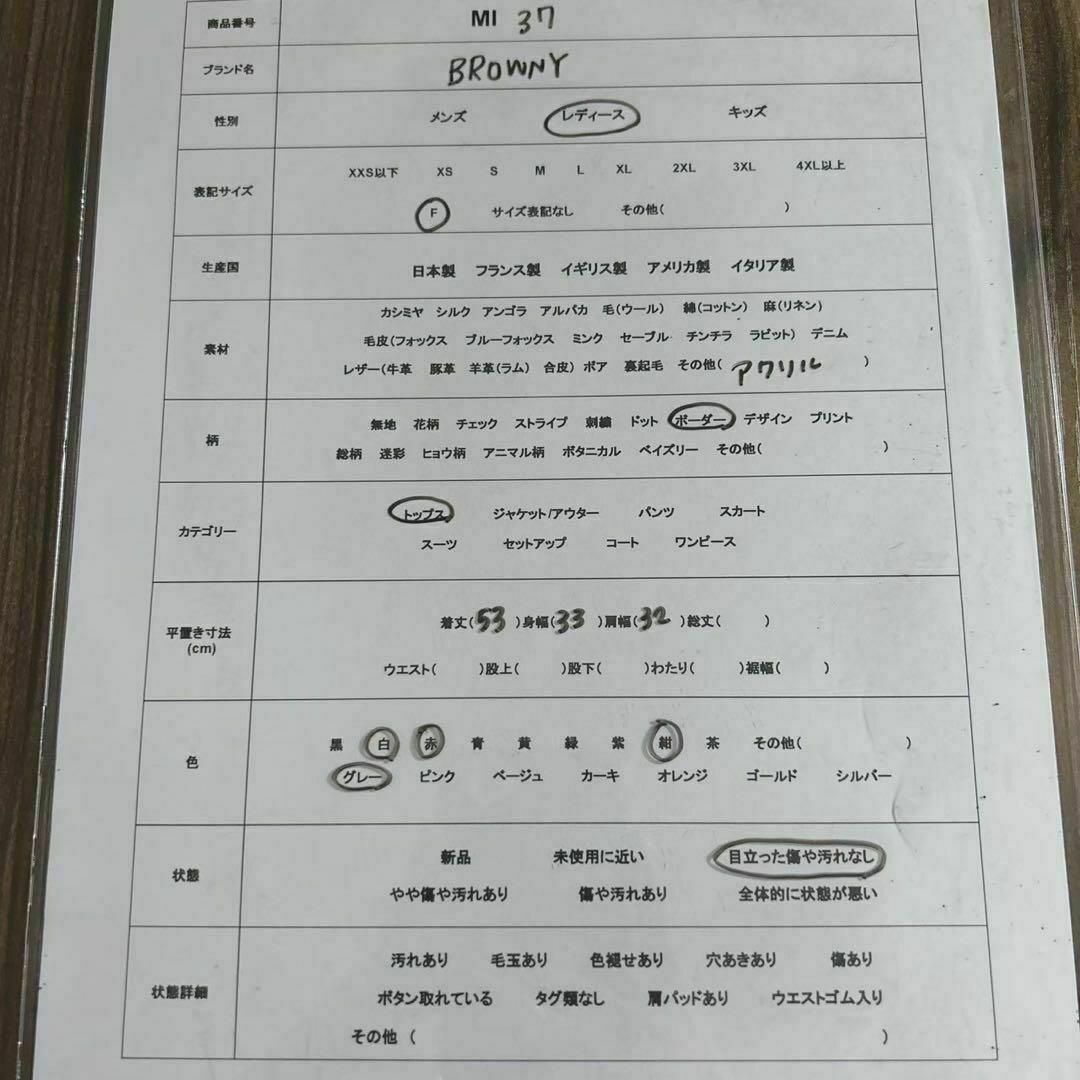 商品番号 MI 37
ブランド名 BROWNY
性別 メンズ レディース キッズ
表記サイズ XXS以下 XS S M L XL 2XL 3XL 4XL以上
F サイズ表記なし その他( )
生産国 日本製 フランス製 イギリス製 アメリカ製 イタリア製
カシミヤ シルク アンゴラ アルパカ 毛(ウール) 綿(コットン) 麻(リネン)
素材 毛皮(フォックス ブルーフォックス ミンク セーブル チンチラ ラビット) デニム
レザー(牛革 豚革 羊革(ラム) 合皮) ボア 裏起毛 その他( アクリル )
柄 無地 花柄 チェック ストライプ 刺繍 ドット ボーダー デザイン プリント
総柄 迷彩 ヒョウ柄 アニマル柄 ボタニカル ペイズリー その他( )
カテゴリー トップス ジャケット/アウター パンツ スカート
スーツ セットアップ コート ワンピース
平置き寸法 着丈(53 )身幅(33 )肩幅(32 )総丈( )
(cm) ウエスト( )股上( )股下( )わたり( )裾幅( )
色 黒 白 赤 青 黄 緑 紫 紺 茶 その他( )
グレー ピンク ベージュ カーキ オレンジ ゴールド シルバー
状態 新品 未使用に近い 目立った傷や汚れなし
やや傷や汚れあり 傷や汚れあり 全体的に状態が悪い
状態詳細 汚れあり 毛玉あり 色褪せあり 穴あきあり 傷あり
ボタン取れている タグ類なし 肩パッドあり ウエストゴム入り
その他 ( )